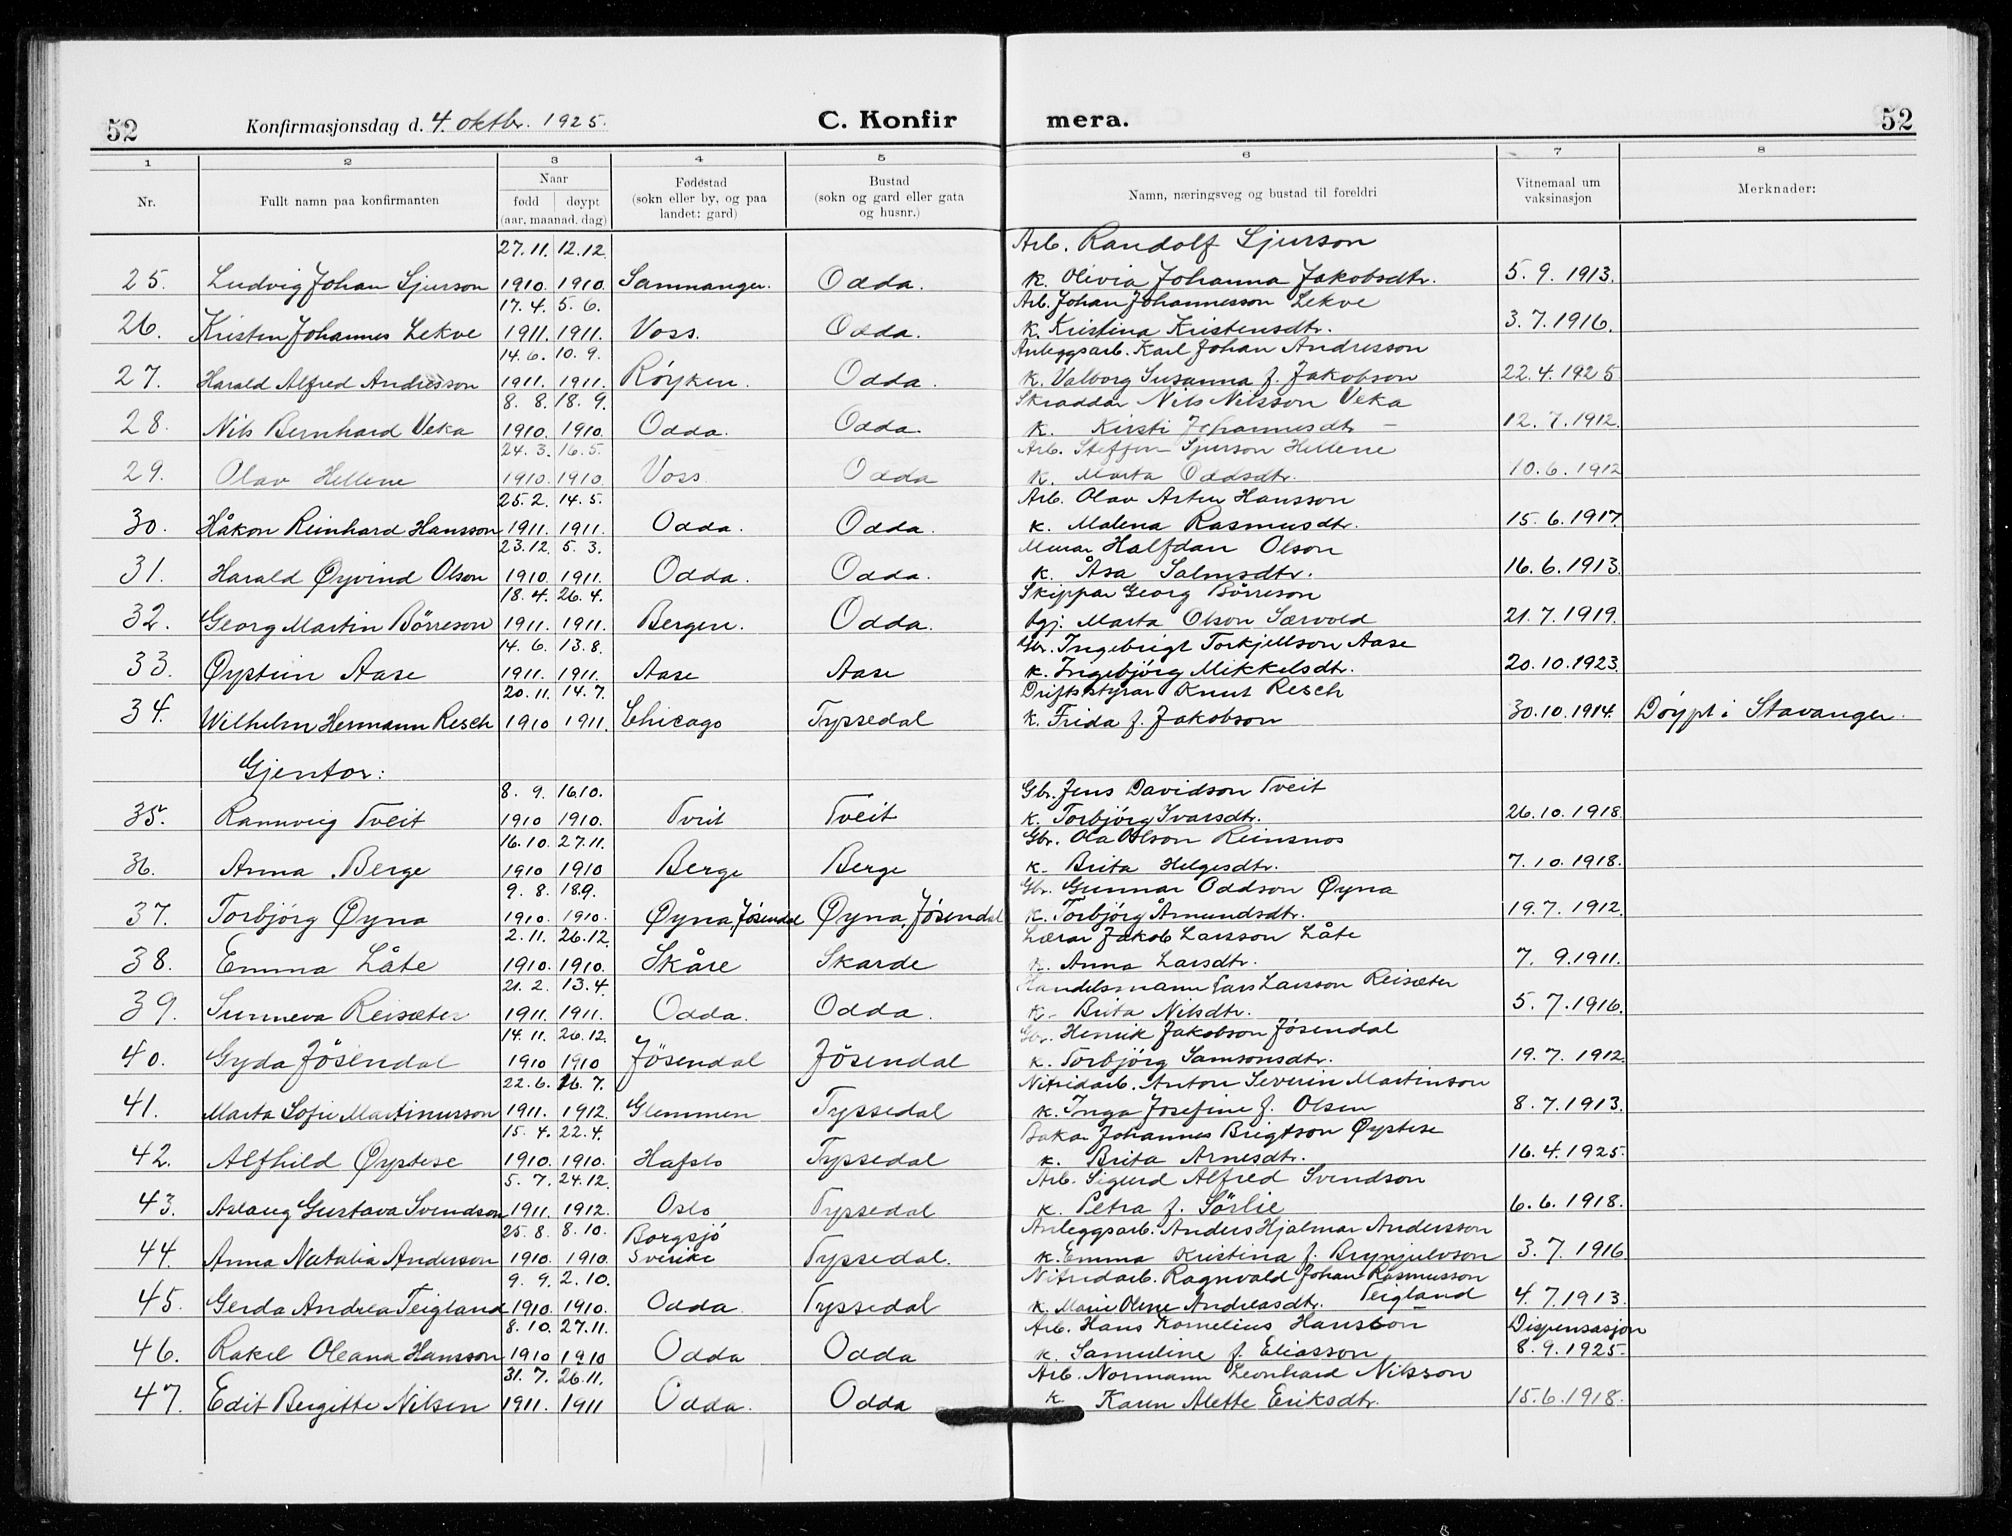 52 Konfirmasjonsdag d. 4. oktbr. 1925. C. Konfir mera. 52
1 2 3 4 5 6 7 8
Nr. Fullt namn paa konfirmanten Naar fødd døypt (aar, maanad, dag) Fødestad (sokn eller by, og paa landet: gard) Bustad (sokn og gard eller gata og husnr.) Namn, næringsveg og bustad til foreldri Vitnemaal um vaksinasjon Merknader:
27.11. 12.12. Arb. Randolf Sjurson
25. Ludvig Johan Sjurson 1910. 1910. Samnanger. Odda. k. Olivia Johanna Jakobsdtr. 5. 9. 1913.
17. 4. 5. 6. Arb. Johan Johannesson Lekve
26. Kristen Johannes Lekve 1911. 1911. Voss. Odda. k. Kristina Kristensdtr. 3. 7. 1916.
14. 6. 10. 9. Anleggsarb. Karl Johan Andresson
27. Harald Alfred Andresson 1911. 1911. Røyken. Odda. k. Valborg Susanna f. Jakobson 22. 4. 1925
8. 8. 18. 9. Skraddar Nils Nilsson Veka
28. Nils Bernhard Veka 1910. 1910. Odda. Odda. k. Kirsti Johannesdtr — 12. 7. 1912.
24. 3. 16. 5. Arb. Steffen Sjurson Hellene
29. Olav Hellene 1910. 1910. Voss Odda k. Marta Oddsdtr. 10. 6. 1912
25. 2. 14. 5. Arb. Olav Hansson
30. Håkon Reinhard Hansson 1911. 1911. Odda. Odda. k. Malena Rasmusdtr. 15. 6. 1917
23.12. 5. 3. Murar Halfdan Olson
31. Harald Øyvind Olson 1910. 1911. Odda. Odda. k. Åsa Salmsdtr. 16. 6. 1913.
18. 4. 26. 4. Skippar Georg Börreson
32. Georg Martin Börreson 1911. 1911. Bergen. Odda. Marta Olson Særvold 21. 7. 1919.
14. 6. 13. 8. Gbr. Ingebrigt Torkjellson Aase
33. Øystein Aase 1911. 1911. Aase Aase k. Ingebjörg Mikkelsdtr. 20. 10. 1923.
20. 11. 14. 7. Driftsstyrar Knut Resch
34. Wilhelm Hermann Resch 1910 1911. Chicago Tyssedal k. Frida f. Jakobson 30. 10. 1914. Döypt i Stavanger.
Gjentor:
8. 9. 16.10. Gbr. Jens Davidson Tveit
35. Rannveig Tveit 1910 1910. Tveit Tveit k. Torbjörg Ivarsdtr. 26. 10. 1918.
16. 10. 27. 11. Gbr. Ola Olson Reinsnos
36. Anna Berge 1910 1910 Berge Berge k. Brita Helgesdtr. 7. 10. 1918.
9. 8. 18.9. Gbr. Gunnar Oddson Øyna
37. Torbjörg Øyna 1910. 1910. Øyna, Jösendal Øyna, Jösendal k. Torbjörg Åmundsdtr. 19. 7. 1912.
2. 11. 26.12. Lærar Jakob Larsson Låte
38. Emma Låte 1910. 1910. Skåre Skarde k. Anna Larsdtr. 7. 9. 1911.
21. 2. 13. 4. Handelsmann Lars Larsson Reisæter
39. Sunneva Reisæter 1911. 1911. Odda. Odda. k. Brita Nilsdtr. 5. 7. 1916.
14. 11. 26. 12. Gbr. Henrik Jakobson Jösendal
40. Gyda Jösendal 1910 1910 Jösendal Jösendal k. Torbjörg Samsonsdtr. 19. 7. 1912.
22. 6. 16. 7. Nitridarb. Anton Severin Martinson
41. Marta Sofie Martinusson 1911. 1912. Glemmen Tyssedal k. Inga Josefine f. Olsen 8. 7. 1913.
15. 4. 22. 4. Bakar Johannes Brigtson Øystese
42. Alfhild Øystese 1910. 1910. Hafslo Tyssedal k. Brita Arnesdtr. 16. 4. 1925.
5. 7. 24.12. Arb. Sigurd Alfred Svendson
43. Aslaug Gustava Svendson 1911. 1912. Oslo Tyssedal k. Petra f. Sörlie 6. 6. 1918.
25. 8. 8. 10. Borgsjö Anleggsarb. Anders Hjalmar Andersson
44. Anna Natalia Anderson 1910. 1910. Sverike Tyssedal. k. Emma Kristina f. Brynjulvson 3. 7. 1916
9. 9. 2. 10. Nitridarb. Ragnvald Johan Rasmusson
45. Gerda Andrea Teigland 1910. 1910. Odda Tyssedal k. Marie Olene Andreasdtr. Teigland 4. 7. 1913.
8. 10. 27. 11. Arb. Hans Kornelius Hansson Dispensasjon
46. Rakel Oleana Hansson 1910 1910 Odda Odda k. Samueline f. Eliasson 8. 9. 1925.
31. 7. 26. 11. Arb. Normann Leonhard Nilsson
47. Edit Bergitte Nilsen 1911. 1911 Odda. Odda k. Karen Alette Eriksdtr. 15. 6. 1918.